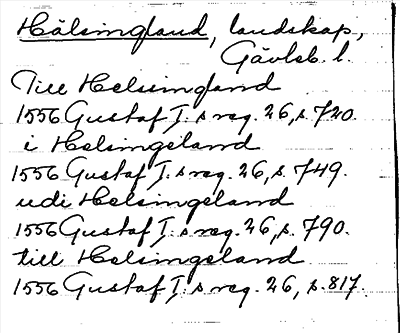 Hälsingland, landskap,
Gävleb. l.
Till Helsingland
1556 Gustaf I:s reg. 26, s. 720.
i Helsingeland
1556 Gustaf I:s reg. 26, s. 749.
udi Helsingeland
1556 Gustaf I:s reg. 26, s. 790.
till Helsingeland
1556 Gustaf I:s reg. 26, s. 817.